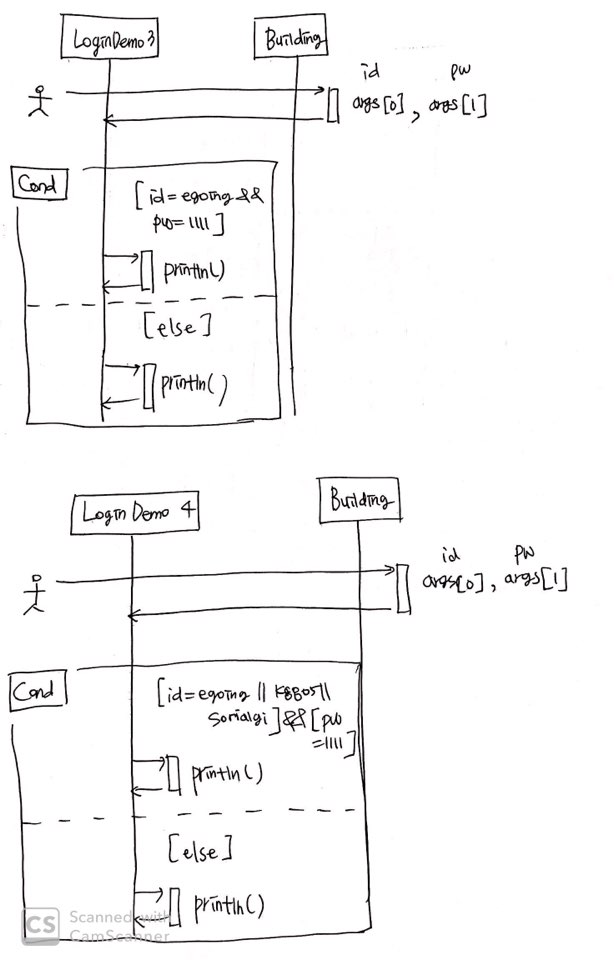 LoginDemo 3
Building
id pw
args[0], args[1]
Cond
[id=egoing &&
pw=1111]
println()
[else]
println()
Login Demo 4
Building
id pw
args[0], args[1]
Cond
[id=egoing || K8805||
Sorialgi]&&[pw
=1111]
println()
[else]
println()
CS Scanned with
CamScanner